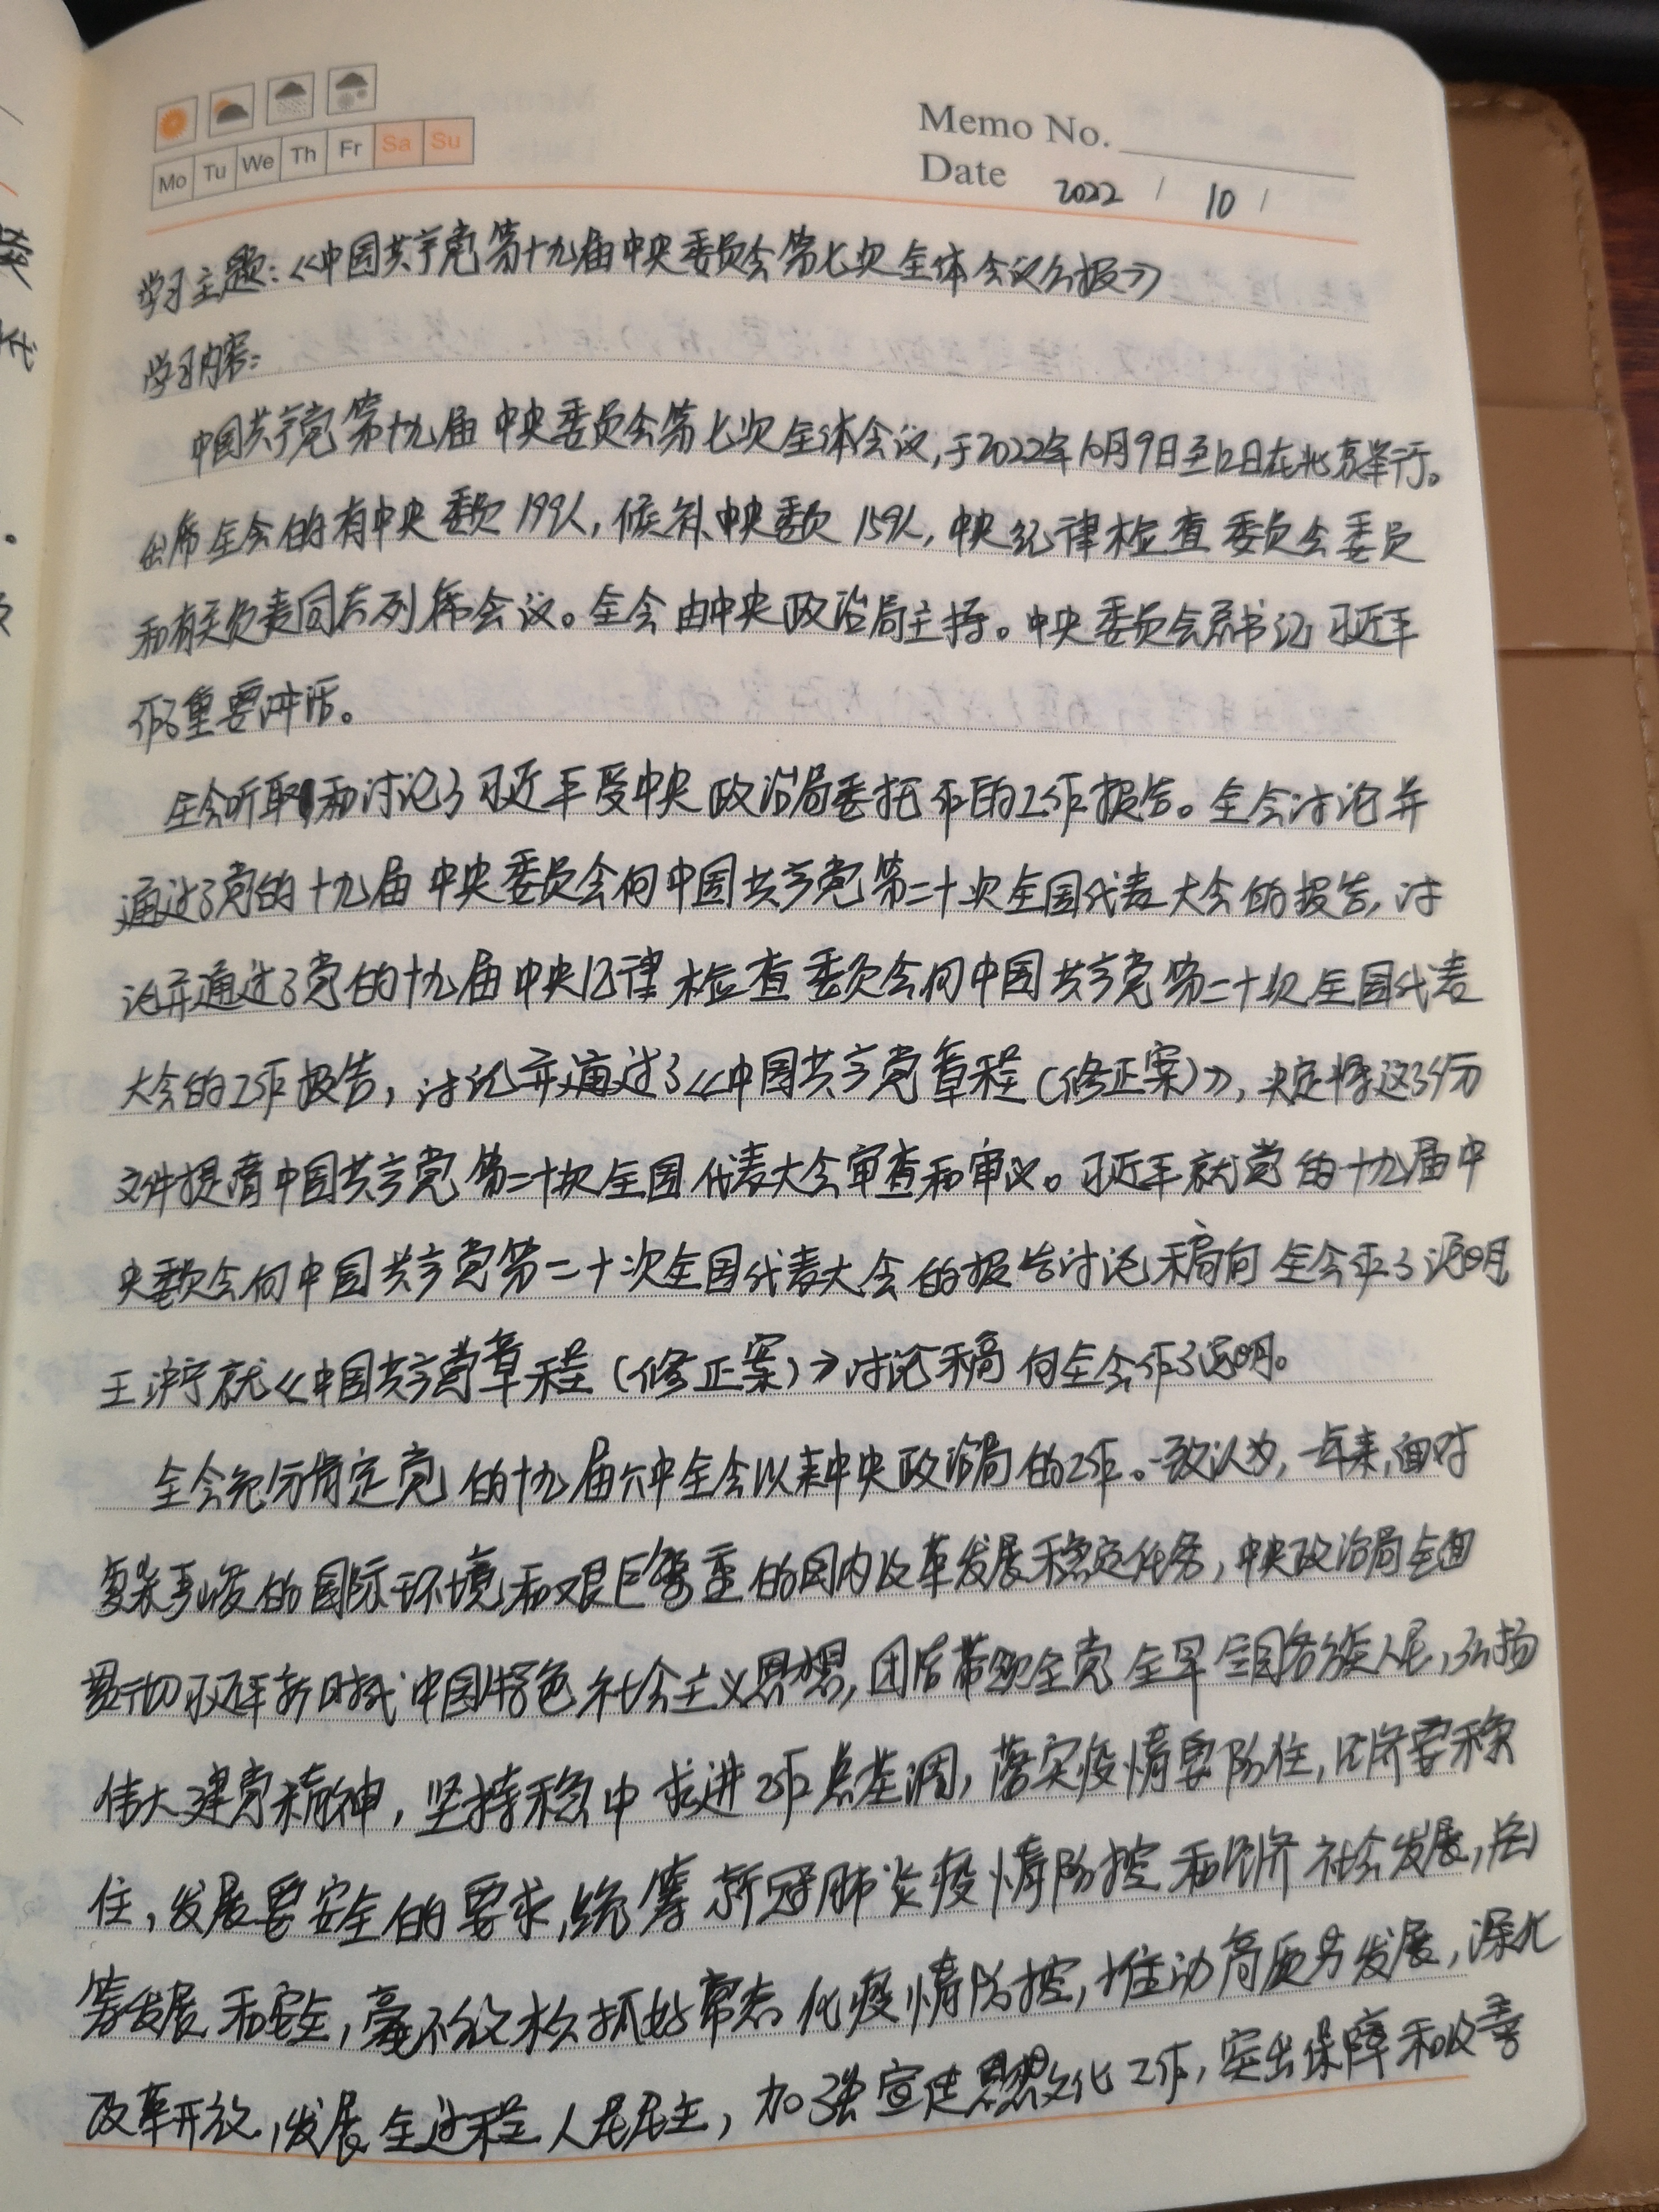 Mo Tu We Th Fr Sa Su
Memo No.
Date 2022 / 10 /
学习主题:《中国共产党第十九届中央委员会第七次全体会议公报》
学习内容:
中国共产党第十九届中央委员会第七次全体会议,于2022年10月9日至12日在北京举行。
出席全会的有中央委员199人,候补中央委员159人,中央纪律检查委员会委员
和有关负责同志列席会议。全会由中央政治局主持。中央委员会总书记习近平
作了重要讲话。
全会听取和讨论了习近平受中央政治局委托作的工作报告。全会讨论并
通过了党的十九届中央委员会向中国共产党第二十次全国代表大会的报告,讨
论并通过了党的十九届中央纪律检查委员会向中国共产党第二十次全国代表
大会的工作报告,讨论并通过了《中国共产党章程(修正案)》,决定将这3份
文件提请中国共产党第二十次全国代表大会审查和审议。习近平就党的十九届中
央委员会向中国共产党第二十次全国代表大会的报告讨论稿向全会作了说明
王沪宁就《中国共产党章程(修正案)》讨论稿向全会作了说明。
全会充分肯定党的十九届六中全会以来中央政治局的工作。一致认为,一年来,面对
复杂严峻的国际环境和艰巨繁重的国内改革发展稳定任务,中央政治局全面
贯彻习近平新时代中国特色社会主义思想,团结带领全党全军全国各族人民,弘扬
伟大建党精神,坚持稳中求进工作总基调,落实疫情要防住,经济要稳
住,发展要安全的要求,统筹新冠肺炎疫情防控和经济社会发展,统
筹发展和安全,毫不放松抓好常态化疫情防控,推动高质量发展,深化
改革开放,发展全过程人民民主,加强宣传思想文化工作,突出保障和改善